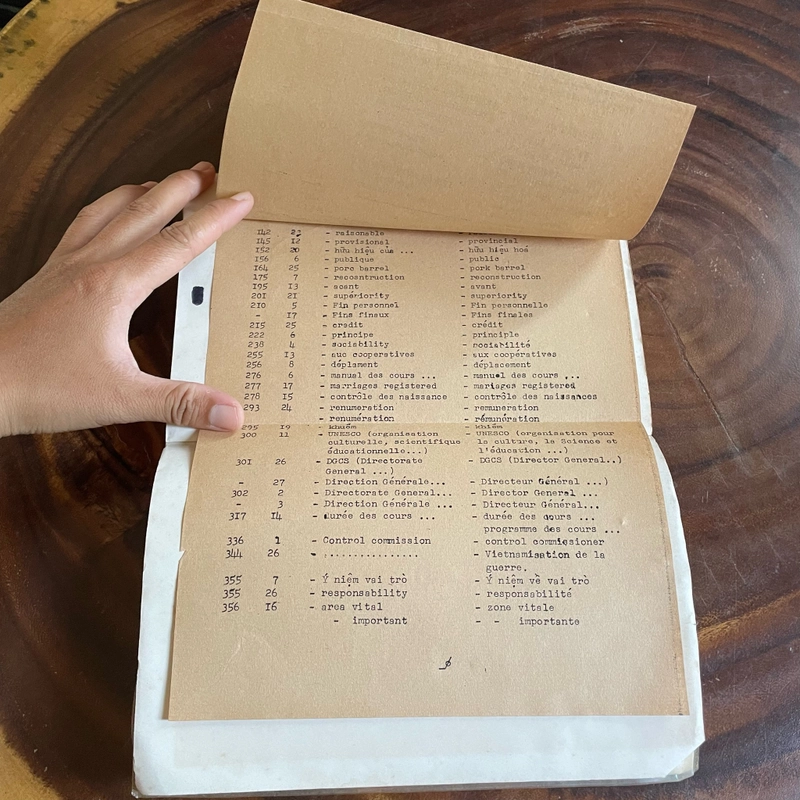 I42 23 - raisonable - raisonnable
I45 I2 - provisional - provincial
I52 20 - hữu hiệu của ... - hữu hiệu hoá
I56 6 - publique - public
I64 25 - porc barrel - pork barrel
I75 7 - recontruction - reconstruction
I95 I3 - acant - avant
20I 2I - supériority - superiority
2I0 5 - Fin personnel - Fin personnelle
- I7 - Fins finaux - Fins finales
2I5 25 - credit - crédit
222 6 - principe - principle
238 4 - sociability - sociabilité
255 I3 - auc cooperatives - aux coopératives
256 8 - déplament - déplacement
276 6 - manual des cours ... - manuel des cours ...
277 17 - marriages registered - mariages registered
278 I5 - contrôle des naissance - contrôle des naissances
293 24 - renumeration - remuneration
- renumération - rémunération
295 I9 - khuếm - khiếm
300 11 - UNESCO (organisation - UNESCO (organisation pour
culturelle, scientifique la culture, la Science et
éducationnelle...) l'éducation ...)
30I 26 - DGCS (Directorate - DGCS (Director General..)
General ...)
- 27 - Direction Générale... - Directeur Général ...)
302 2 - Directorate General... - Director General ...
- 3 - Direction Générale ... - Directeur Général...
3I7 I4 - durée des cours ... - durée des cours ...
programme des cours ...
336 1 - Control commission - control commissioner
344 26 - ................ - Vietnamisation de la
guerre.
355 7 - Ý niệm vai trò - Ý niệm về vai trò
355 26 - responsability - responsabilité
356 I6 - area vital - zone vitale
- important - - importante